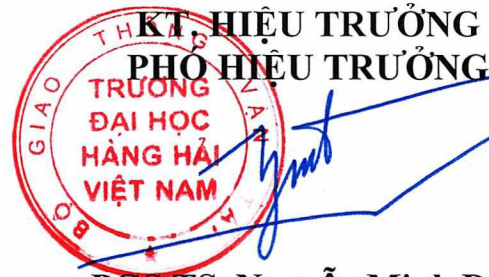 KT. HIỆU TRƯỞNG
PHÓ HIỆU TRƯỞNG
BỘ GIAO THÔNG VẬN TẢI
TRƯỜNG
ĐẠI HỌC
HÀNG HẢI
VIỆT NAM
PGS.TS. Nguyễn Minh